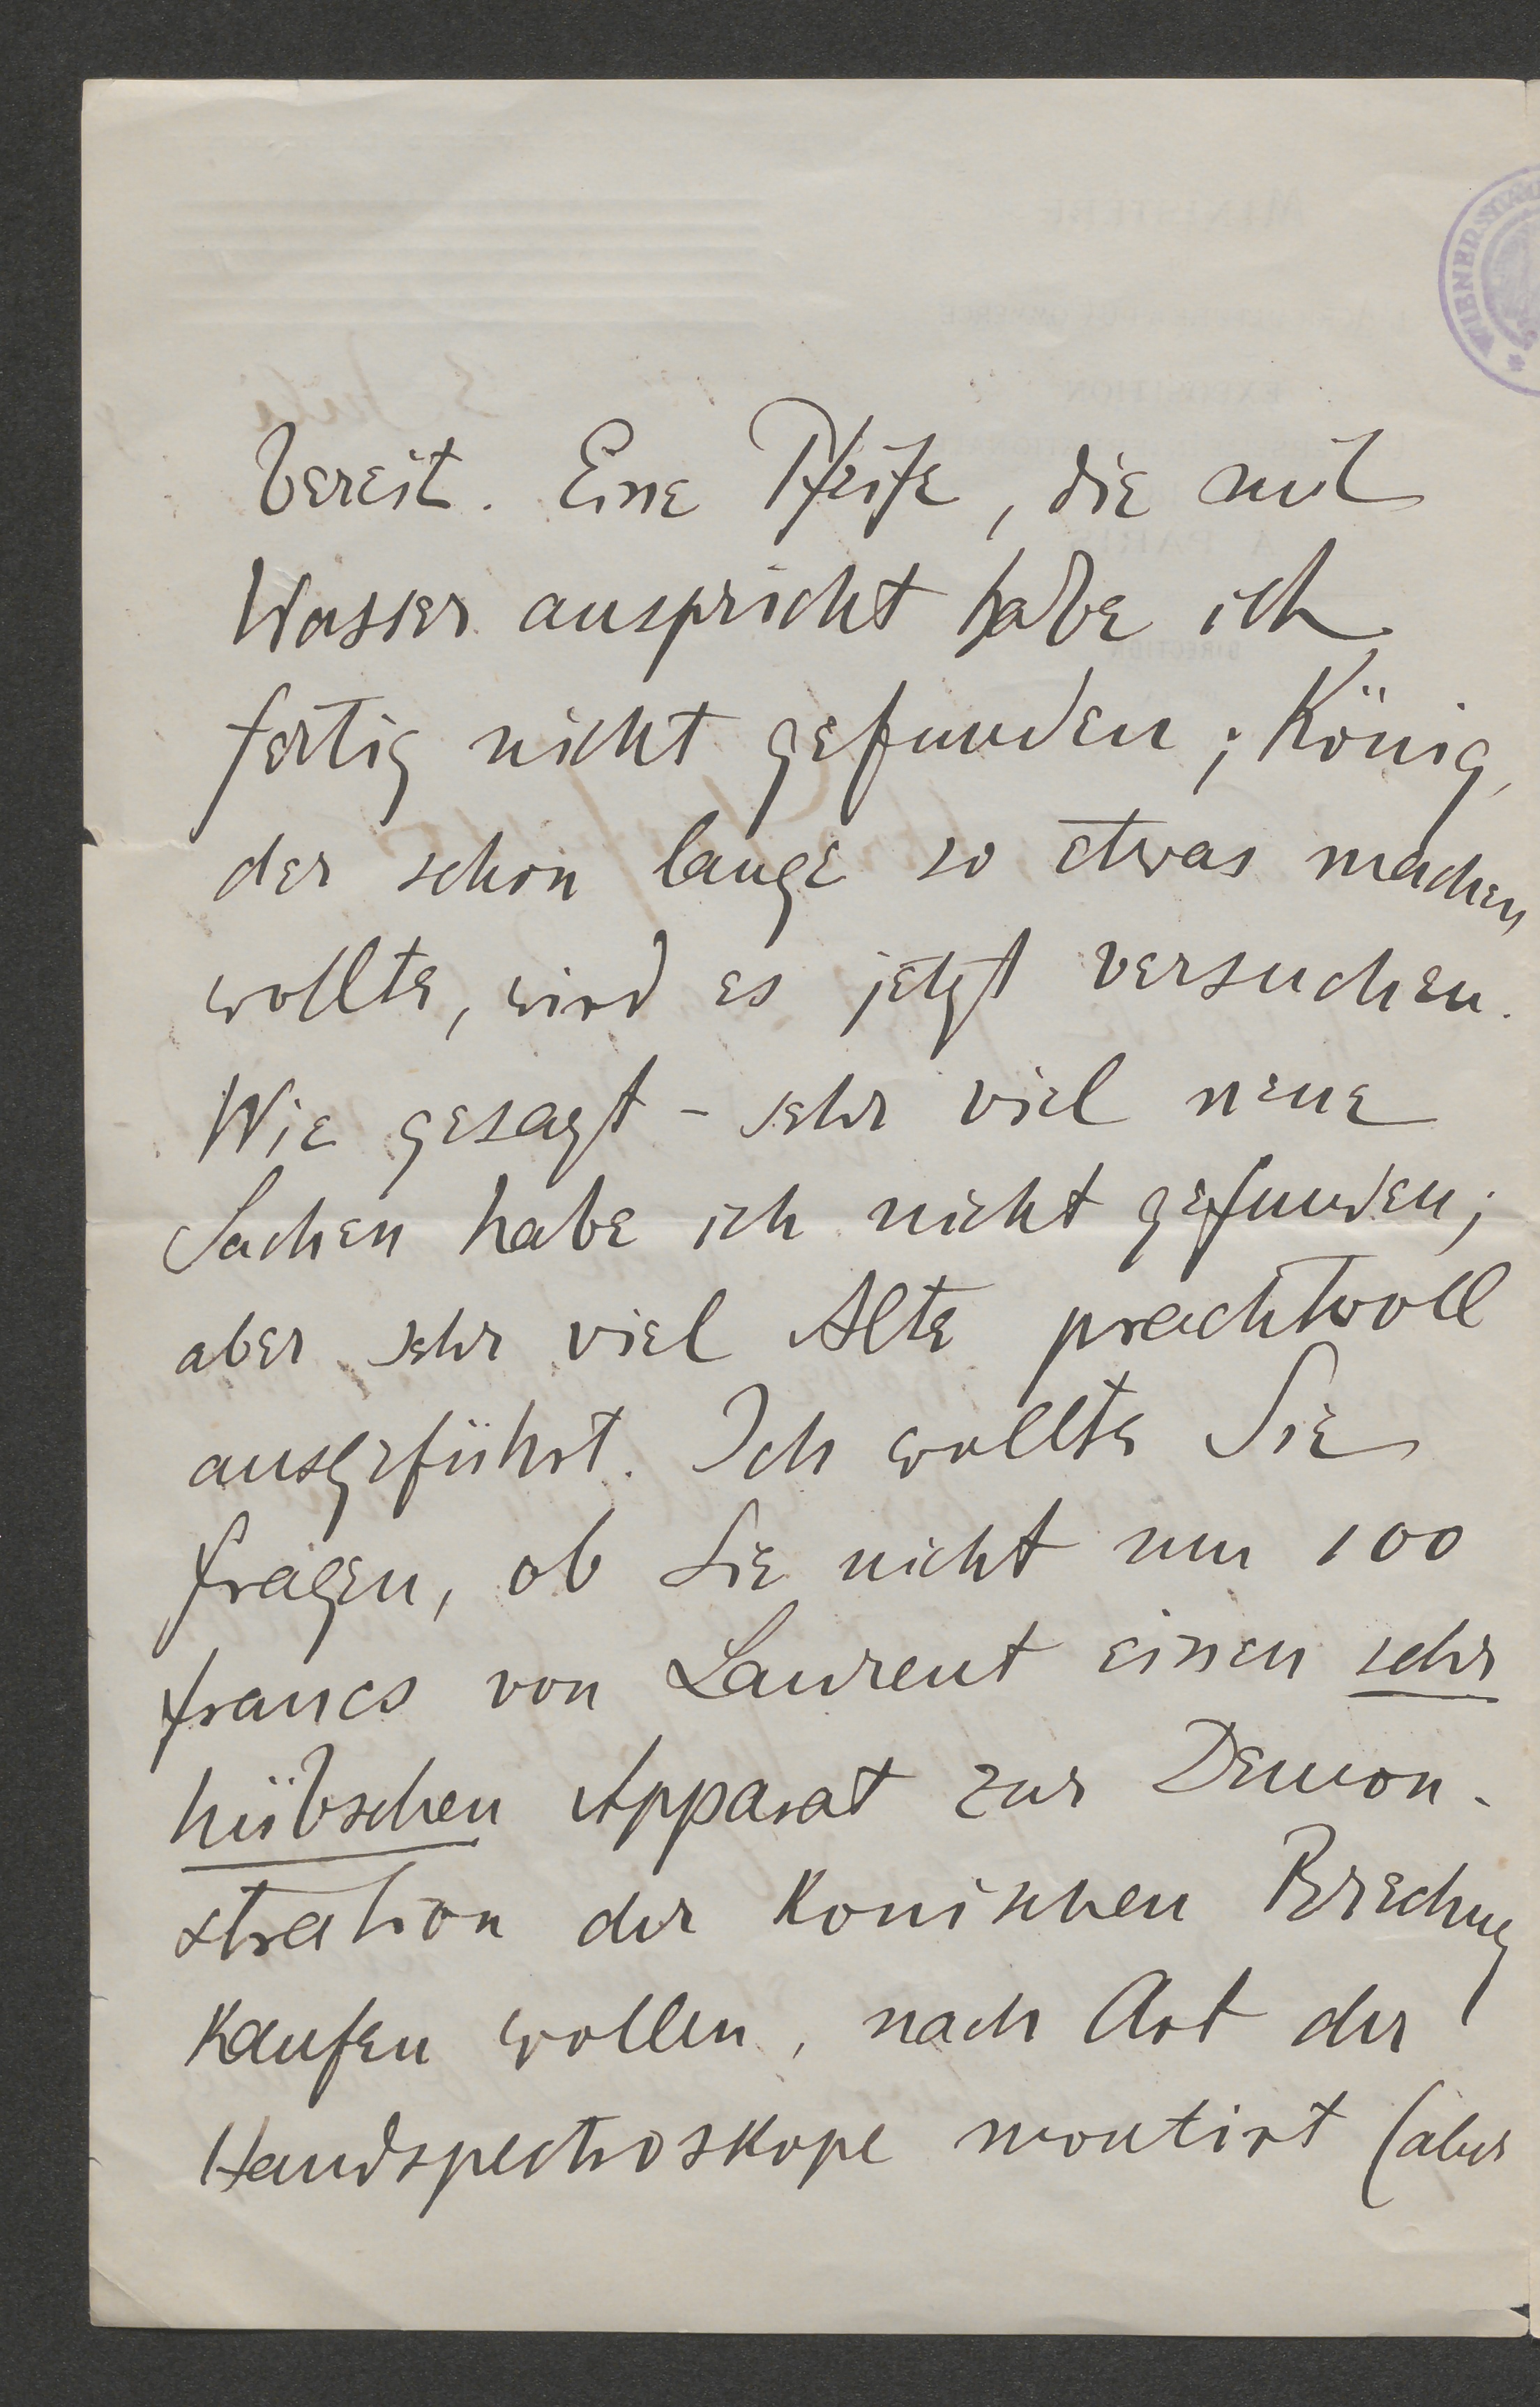 bereit. Eine Pfeife, die mit
Wasser anspricht habe ich
fertig nicht gefunden; König,
der schon lange so etwas machen
wollte, wird es jetzt versuchen.
Wie gesagt – sehr viel neue
Sachen habe ich nicht gefunden;
aber sehr viel Alte prachtvoll
ausgeführt. Ich wollte Sie
fragen, ob Sie nicht um 100
francs von Laurent einen sehr
hübschen Apparat zur Demon-
stration der Konischen Brechung
Kaufen wollen, nach Art der
Handspectroskope montirt (aber